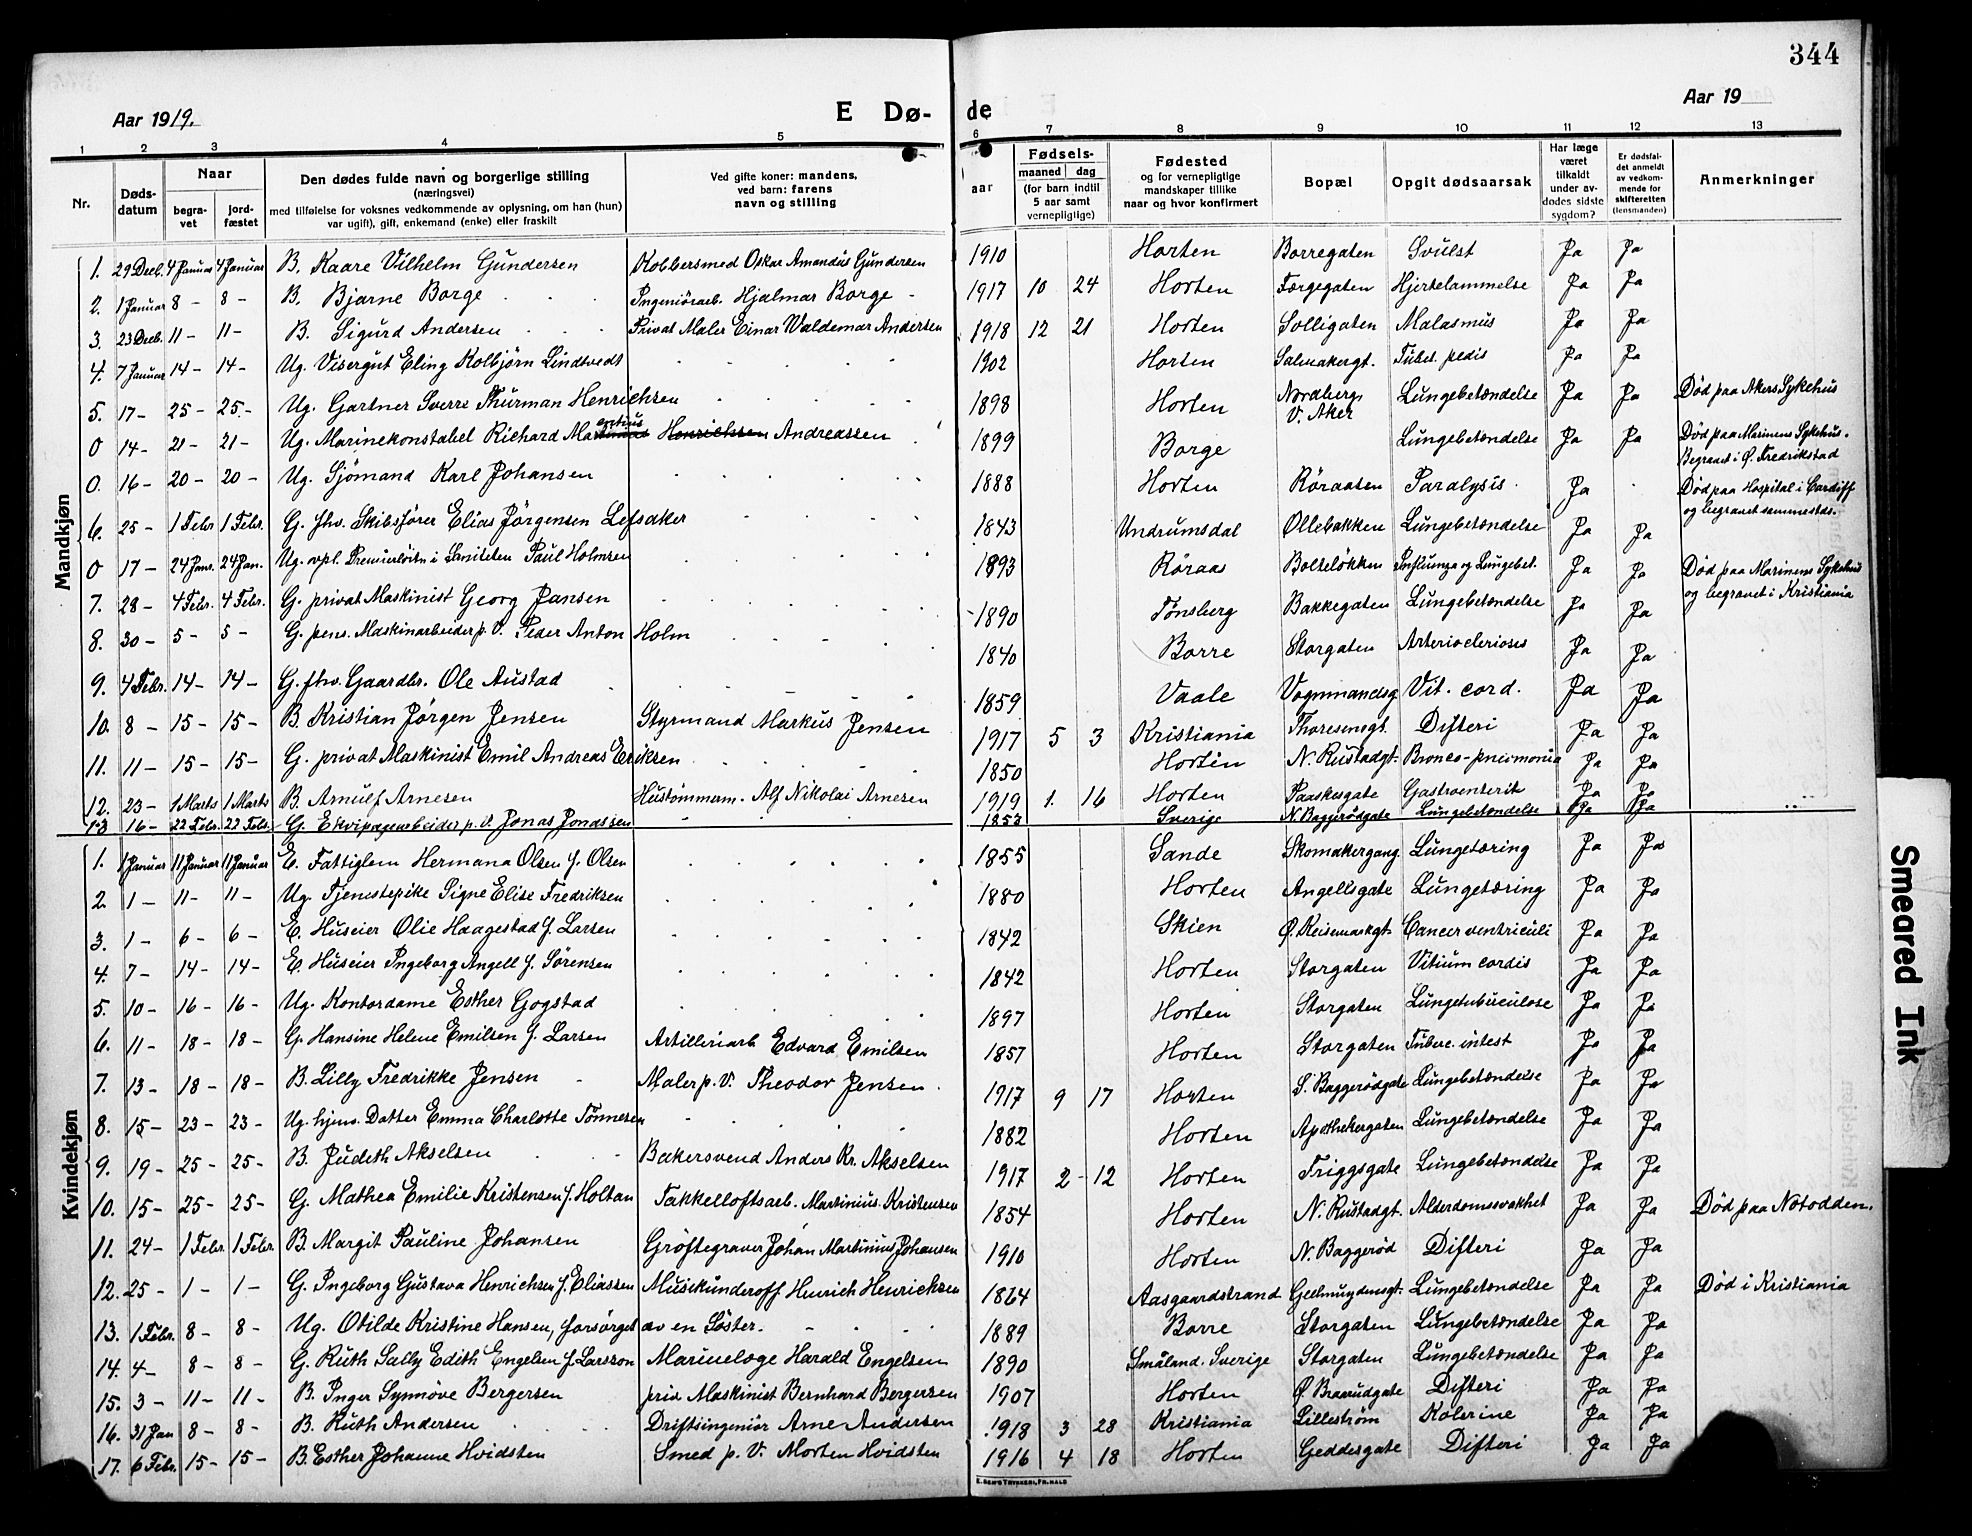 344
Aar 1919.
E Dø-
de
Aar 19
1 2 3 4 5 6 7 8 9 10 11 12 13
Nr.
Døds-
datum
Naar
begra-
vet
jord-
fæstet
Den dødes fulde navn og borgerlige stilling
(næringsvei)
med tilføielse for voksnes vedkommende av oplysning, om han (hun)
var ugift), gift, enkemand (enke) eller fraskilt
Ved gifte koner: mandens,
ved barn: farens
navn og stilling
aar
Fødsels-
maaned dag
(for barn indtil
5 aar samt
vernepligtige)
Fødested
og for vernepligtige
mandskaper tillike
naar og hvor konfirmert
Bopæl
Opgit dødsaarsak
Har læge
været
tilkaldt
under av-
dødes sidste
sygdom?
Er dødsfal-
det anmeldt
av vedkom-
mende for
skifteretten
(lensmanden)
Anmerkninger
Mandkjøn
1. 29 Decb. 4 Januar 4 Januar B. Kaare Vilhelm Gundersen Kobbersmed Oskar Amandus Gundersen 1910 Horten Borregaten Svulst Ja Ja
2. 1 Januar 8 - 8 - B. Bjarne Borge Ingeniørarb. Hjalmar Borge 1917 10 24 Horten Færgegaten Hjertelammelse Ja Ja
3. 23 Decb. 11 - 11 - B. Sigurd Andersen Privat Maler Einar Valdemar Andersen 1918 12 21 Horten Solligaten Malasmus Ja Ja
4. 7 Januar 14 - 14 - Ug. Visergut Eling Kolbjørn Lindtvedt 1902 Horten Salmakergt. Tuber. pedis Ja Ja
5. 17 - 25 - 25 - Ug. Gartner Sverre Thurman Henrichsen 1898 Horten Nordberg V. Aker Lungebetændelse Ja Ja Død paa Akers Sykehus
0 14 - 21 - 21 - Ug. Marinekonstabel Richard Henrichsen Andreassen 1899 Borge Lungebetændelse Ja Ja Død paa Marinens Sykehus.
Begravet i Ø. Fredrikstad
0. 16 - 20 - 20 - Ug. Sjömand Karl Johansen 1888 Horten Röraaten Paralysis Ja Død paa Hospital i Cardiff
og begravet sammesteds.
6. 25 - 1 Febr. 1 Febr. G. fhv. Skibsfører Elias Jørgensen Lefsaker 1843 Undrumsdal Ollebakken Lungebetændelse Ja Ja
0 17 - 24 Jans. 24 Jan. Ug. vpl. Premierlöitn i Saniteten Paul Holmsen 1893 Røraas Bolteløkken Influenza og Lungebet. Ja Ja Død paa Marinens Sykehus
og begravet i Kristiania
7. 28 - 4 Febr. 4 Febr. G. privat Maskinist Georg Jansen 1890 Tønsberg Bakkegaten Lungebetændelse Ja Ja
8. 30 - 5 - 5 - G. pens. Maskinarbeider p. V. Peder Anton Holm 1840 Borre Storgaten Arterioclerioses Ja Ja
9. 4 Febr. 14 - 14 - G. fhv. Gaardbr. Ole Austad 1859 Vaale Vognmandsg Vit. cord. Ja Ja
10. 8 - 15 - 15 - B. Kristian Jørgen Jensen Styrmand Markus Jensen 1917 5 3 Kristiania Thoresensgt. Difteri Ja Ja
11. 11 - 15 - 15 - G. privat Maskinist Emil Andreas Eriksen 1850 Horten N. Rustadgt. Bronco-pneumonia Ja Ja
12. 23 - 1 Marts 1 Marts B. Arnulf Arnesen Hustømmerm. Alf Nikolai Arnesen 1919 1. 16 Horten Paaskesgate Gastroenterit Ja Ja
13 16 - 22 Febr. 22 Febr. G. Ekvipagearbeider p. V. Jonas Jonassen 1853 Sverige N. Baggerødgate Lungebetændelse Ja Ja
Kvindekjøn
1. 1 Januar 11 Januar 11 Januar E. Fattiglem Hermana Olsen f. Olsen 1855 Sande Skomakergang. Lungetæring Ja Ja
2 1 - 11 - 11 - Ug. Tjenestepike Signe Elise Fredriksen 1880 Horten Angellsgate Lungetæring Ja Ja
3. 1 - 6 - 6 - E. Huseier Olie Haagestad f. Larsen 1842 Skien Ø. Keisemarkgt. Cancer ventriculi Ja Ja
4. 7 - 14 - 14 - E. Huseier Ingeborg Angell f. Sørensen 1842 Horten Storgaten Vitium cordis Ja Ja
5. 10 - 16 - 16 - Ug. Kontordame Esther Gogstad 1897 Horten Storgaten Lungetuberculose Ja Ja
6. 11 - 18 - 18 - G. Hansine Helene Emilsen f. Larsen Artilleriarb Edvard Emilsen 1857 Horten Storgaten Tuberc. intest Ja Ja
7. 13 - 18 - 18 - B. Lilly Fredrikke Jensen Maler p. V. Theodor Jensen 1917 9 17 Horten S. Baggerødgate Lungebetændelse Ja Ja
8. 15 - 23 - 23 - Ug. hjem. Datter Emma Charlotte Tönnesen 1882 Horten Apothekergaten Lungebetændelse Ja Ja
9. 19 - 25 - 25 - B. Judith Akselsen Bakersvend Anders Kr. Akselsen 1917 2 - 12 Horten Friggsgate Lungebetændelse Ja Ja
10. 15 - 25 - 25 - G. Mathea Emilie Kristensen f. Holtan Takkelloftsarb. Martinius Kristensen 1854 Horten N. Rustadgt. Alderdomssvakhet Ja Ja Død paa Notodden.
11. 24 - 1 Febr. 1 Febr. B. Margit Pauline Johansen Grøftegraver Johan Martinius Johansen 1910 Horten N. Baggerød Difteri Ja Ja
12. 25 - 1 - 1 - G. Ingeborg Gustava Henrichsen f. Eliassen Musikunderoff. Henrich Henrichsen 1864 Aasgaardstrand Lungebetændelse Ja Ja Død i Kristiania
13. 1 Febr. 8 - 8 - Ug. Otilde Kristine Hansen, forsørget av en Søster. 1889 Borre Storgaten Lungebetændelse Ja Ja
14. 4 - 8 - 8 - G. Ruth Sally Edith Engelsen f. Larsson Marinelæge Harald Engelsen 1890 Småland, Sverige Storgaten Lungebetændelse Ja Ja
15. 3 - 11 - 11 - B. Inger Synnöve Bergersen priv. Maskinist Bernhard Bergersen 1907 Horten Ø. Braarudgate Difteri Ja Ja
16. 31 Jan 8 - 8 - B. Ruth Andersen Driftsingeniør Arne Andersen 1918 3 28 Kristiania Lillestrøm Kolerine Ja Ja
17. 6 Febr. 15 - 15 - B. Esther Johanne Hvidsten Smed p. V. Morten Hvidsten 1916 4 18 Horten Geddesgate Difteri Ja Ja
E. SEM'S TRYKKERI, FR.HALD
Smeared Ink